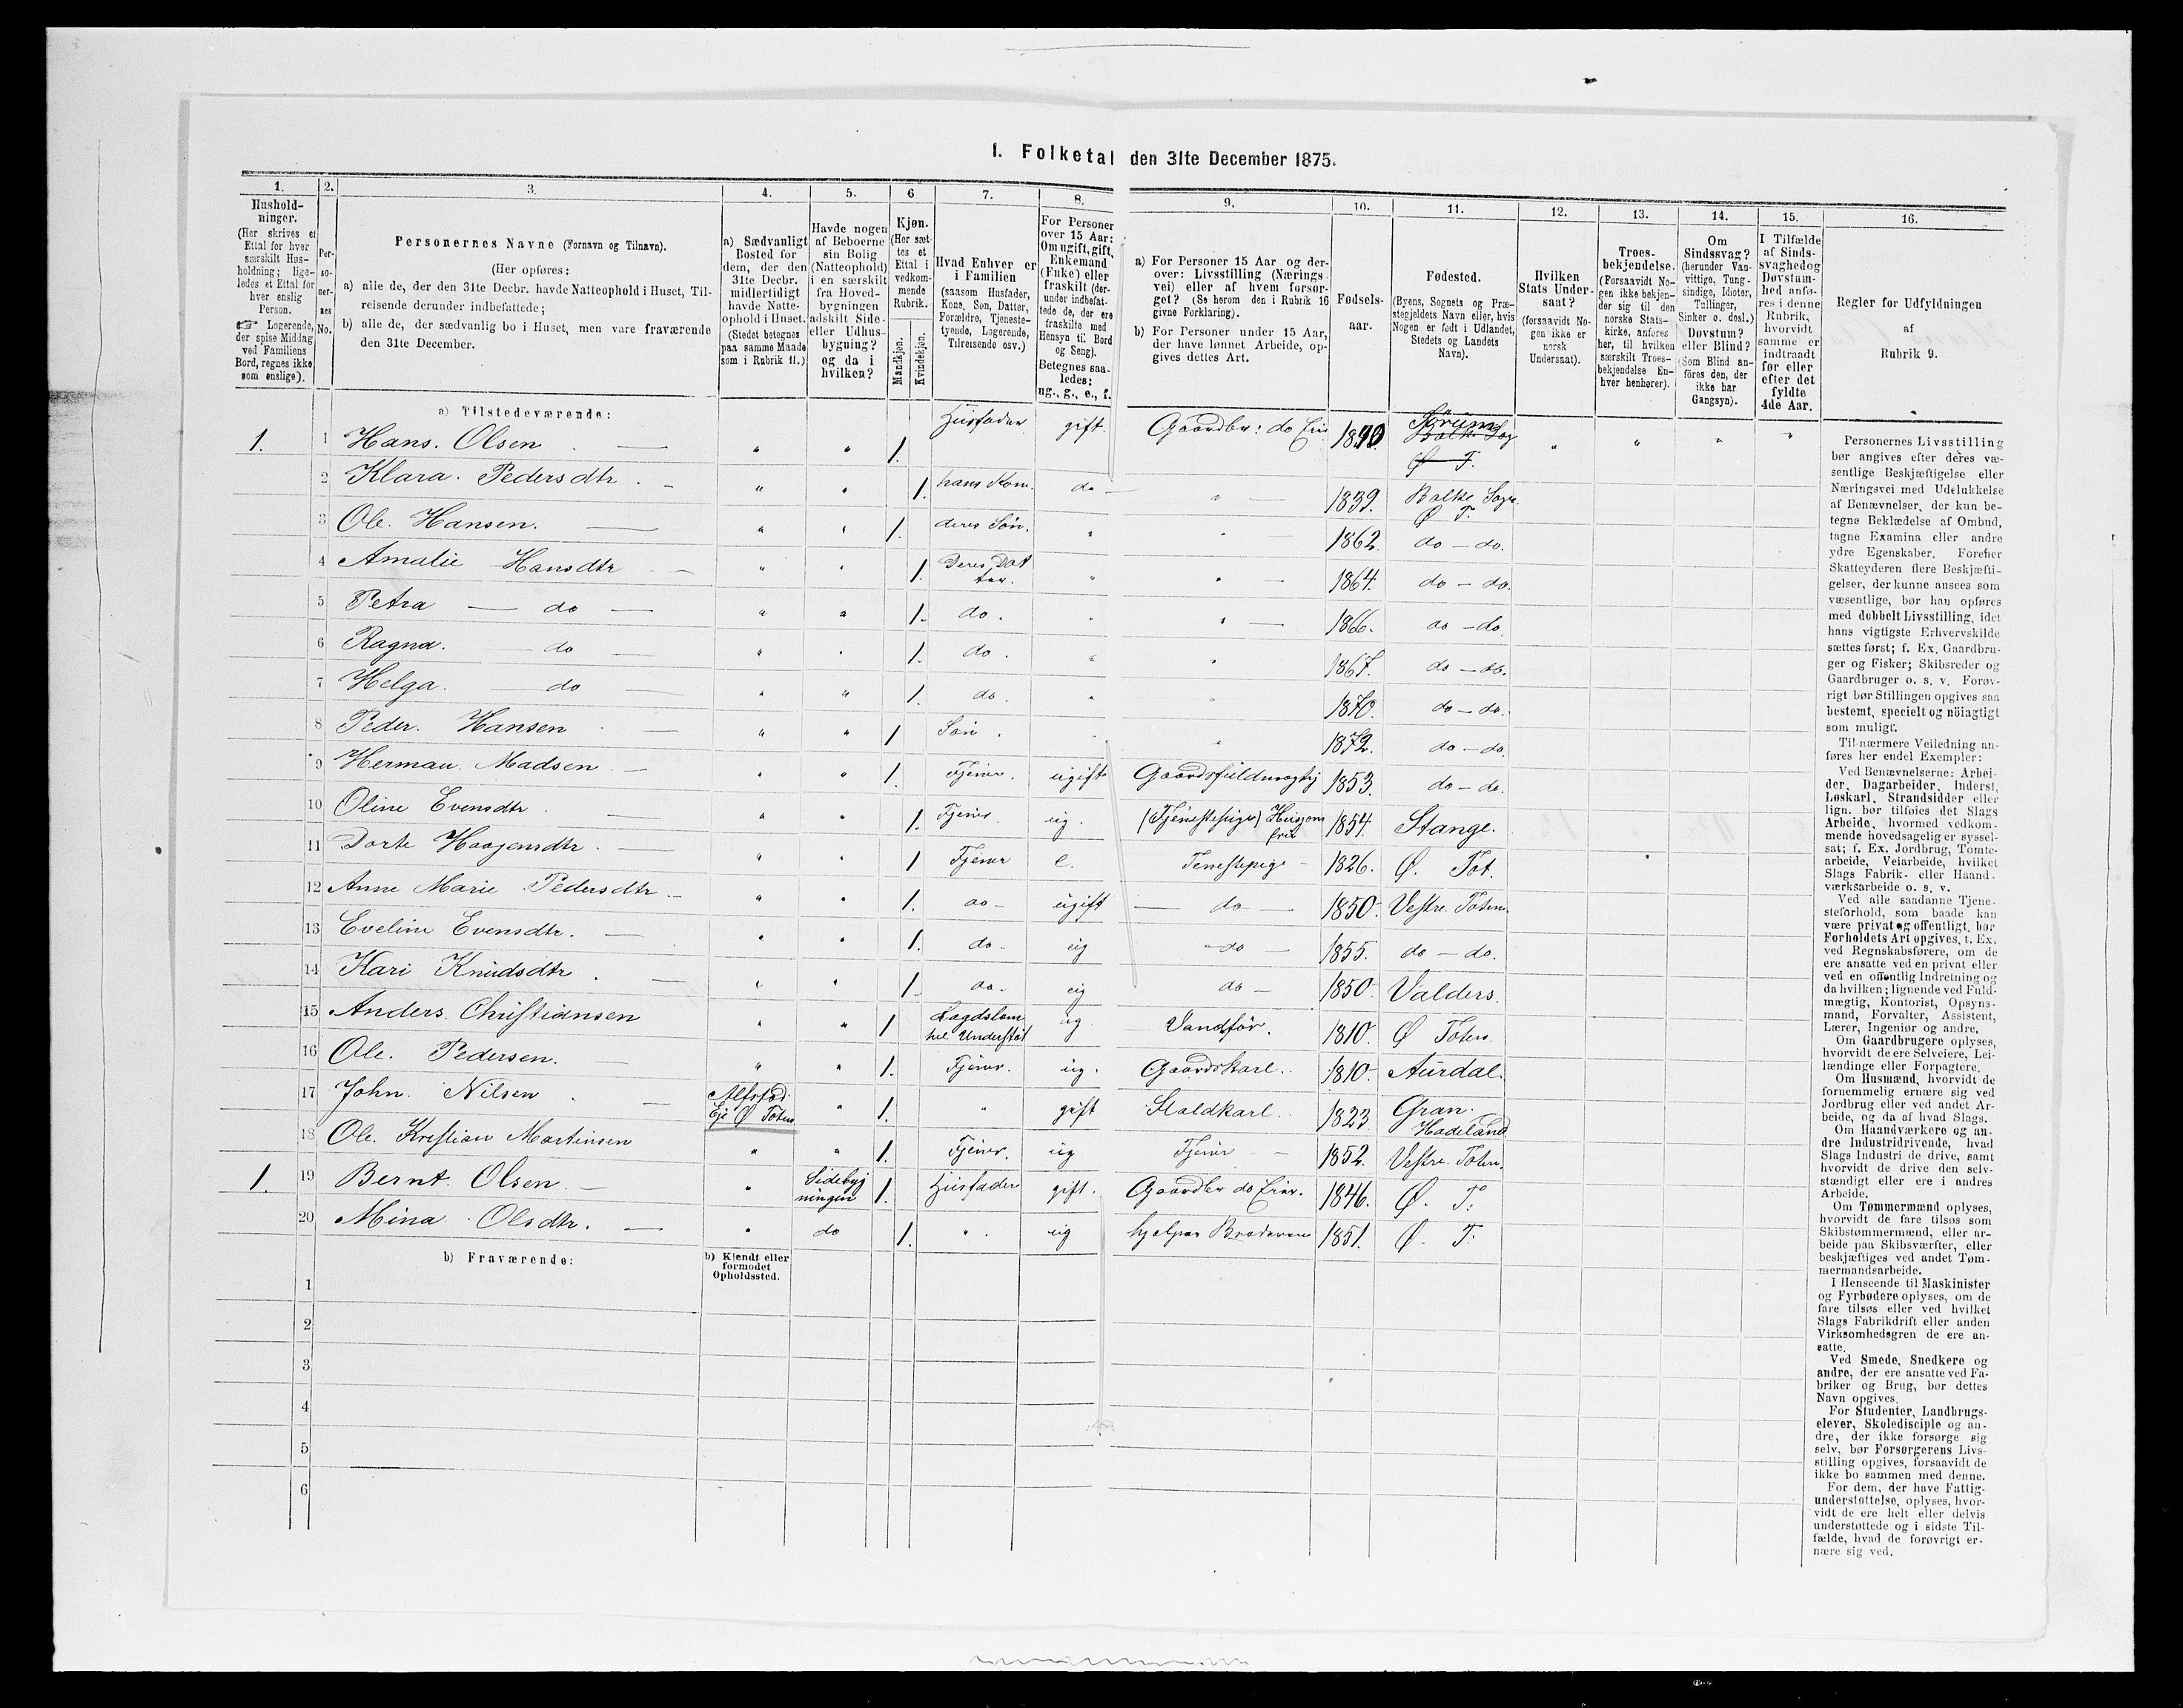 1. Folketal den 31te December 1875.
1. 2. 3. 4. 5. 6 7. 8. 9. 10. 11. 12. 13. 14. 15. 16.
Hushold-
ninger.
(Her skrives et
Ettal for hver
særskilt Hus-
holdning; lige-
ledes et Ettal for
hver enslig
Person.
☞ Logerende,
der spise Middag
ved Familiens
Bord, regnes ikke
som enslige).
Per-
so-
ner-
nes
No.
Personernes Navne (Fornavn og Tilnavn).
(Her opføres:
a) alle de, der den 31te Decbr. havde Natteophold i Huset, Til-
reisende derunder indbefattede;
b) alle de, der sædvanlig bo i Huset, men vare fraværende
den 31te December.
a) Sædvanligt
Bosted for
dem, der den
31te Decbr.
midlertidigt
havde Natte-
ophold i Huset.
(Stedet betegnes
paa samme Maade
som i Rubrik 11.)
Havde nogen
af Beboerne
sin Bolig
(Natteophold)
i en særskilt
fra Hoved-
bygningen
adskilt Side-
eller Udhus-
bygning?
og da i
hvilken?
Kjøn.
(Her sæt-
tes et
Ettal i
vedkom-
mende
Rubrik.
Mandkjøn.
Kvindekjøn.
Hvad Enhver er
i Familien
(saasom Husfader,
Kone, Søn, Datter,
Forældre, Tjeneste-
tyende, Logerende,
Tilreisende osv.)
For Personer
over 15 Aar:
Om ugift, gift,
Enkemand
(Enke) eller
fraskilt (der-
under indbefat-
tede de, der ere
fraskilte med
Hensyn til Bord
og Seng).
Betegnes saa-
ledes:
ug., g., e., f.
a) For Personer 15 Aar og der-
over: Livsstilling (Nærings-
vei) eller af hvem forsør-
get? (Se herom den i Rubrik 16
givne Forklaring).
b) For Personer under 15 Aar,
der have lønnet Arbeide, op-
gives dettes Art.
Fødsels-
aar.
Fødested.
(Byens, Sognets og Præ-
stegjeldets Navn eller, hvis
Nogen er født i Udlandet,
Stedets og Landets
Navn).
Hvilken
Stats Under-
saat?
(forsaavidt No-
gen ikke er
norsk
Undersaat).
Troes-
bekjendelse.
(Forsaavidt No-
gen ikke bekjen-
der sig til den
norske Stats-
kirke, anføres
her, til hvilken
særskilt Troes-
bekjendelse En-
hver henhører).
Om
Sindssvag?
(herunder Van-
vittige, Tung-
sindige, Idioter,
Tullinger,
Sinker o. desl.)
Døvstum?
eller Blind?
(Som Blind an-
føres den, der
ikke har
Gangsyn).
I Tilfælde
af Sinds-
svaghed og
Døvstum-
hed anfø-
res i denne
Rubrik,
hvorvidt
samme er
indtraadt
før eller
efter det
fyldte
4de Aar.
Regler for Udfyldningen
af
Rubrik 9.
a) Tilstedeværende:
1. 1 Hans. Olsen " " 1. Husfader gift. Gaardbr: do Eier 1840. Balke Sog Ø T. Sörum " " " "
2 Klara. Pedersdtr. " " 1. hans Kone. do " 1839. Balke Sogn. Ø T.
3 Ole. Hansen. " " 1. deres Sön. " " 1862. do – do.
4 Amalie Hansdtr " " 1. Deres Dat ter. " " 1864. do – do.
5 Petra – do – " " 1. do. " " 1866. do – do.
6 Ragna. do " " 1. do. " " 1867. do – do.
7 Helga. – do " " 1. do. " " 1870. do – do.
8 Peder. Hansen " " 1 Sön. " " 1872. do – do.
9 Herman. Madsen " " 1. Tjener. ugift Gaardsfuldmægtig 1853. do – do.
10 Oline Evensdtr " " 1. Tjener. ug. (Tjenestepige) Husjomfru 1854. Stange.
11 Dorte Haagensdtr. " " 1 Tjener e. Tenestepige 1826. Ø. Tot.
12 Anne Marie Pedersdtr. " " 1. do – ugift do 1850. Vestre Toten.
13 Eveline Evensdtr. " " 1. do – ug do 1855. do – do.
14 Kari Knudsdtr. " " 1. do. ug do 1850. Valders.
15 Anders. Christiansen " " 1 Lagdslem hel Understöt ug. Vandför. 1810. Ø Toten.
16 Ole. Pedersen. " " 1. Tjener. ug. Gaardskarl. 1810. Aurdal.
17 John. Nilsen Alfstad Eje Ø Toten " 1. " gift Staldkarl. 1823 Gran. Hadeland
18 Ole. Kristian Martinsen " " 1. Tjener. ug Tjener 1852. Vestre. Toten.
1. 19 Bernt. Olsen " Sidebyg ningen 1. Husfader gift. Gaardbr do Eier. 1846. Ø. T.
20 Mina Olsdtr. " do 1. " ug hjelper Broderen 1851. Ø. T.
b) Fraværende:
b) Kjendt eller
formodet
Opholdssted.
1
2
3
4
5
6
Personernes Livsstilling
bør angives efter deres væ-
sentlige Beskjæftigelse eller
Næringsvei med Udelukkelse
af Benævnelser, der kun be-
tegne Beklædelse af Ombud,
tagne Examina eller andre
ydre Egenskaber. Forener
Skatteyderen flere Beskjæfti-
gelser, der kunne ansees som
væsentlige, bør han opføres
med dobbelt Livsstilling, idet
hans vigtigste Erhvervskilde
sættes først; f. Ex. Gaardbru-
ger og Fisker; Skibsreder og
Gaardbruger o. s. v. Forøv-
rigt bør Stillingen opgives saa
bestemt, specielt og nöiagtigt
som muligt.
Til nærmere Veiledning an-
føres her endel Exempler:
Ved Benævnelserne: Arbei-
der, Dagarbeider, Inderst,
Løskarl, Strandsidder eller
lign. bør tilføies det Slags
Arbeide, hvormed vedkom-
mende hovedsagelig er syssel-
sat; f. Ex. Jordbrug, Tomte-
arbeide, Veiarbeide, hvilket
Slags Fabrik- eller Haand-
værksarbeide o. s. v.
Ved alle saadanne Tjene-
steforhold, som baade kan
være privat og offentligt, bør
Forholdets Art opgives, t. Ex.
ved Regnskabsførere, om de
ere ansatte ved en privat eller
ved en offentlig Indretning og
da hvilken; lignende ved Fuld-
mægtig, Kontorist, Opsyns-
mand, Forvalter, Assistent,
Lærer, Ingeniør og andre.
Om Gaardbrugere oplyses,
hvorvidt de ere Selveiere, Lei-
lændinge eller Forpagtere.
Om Husmænd, hvorvidt de
fornemmelig ernære sig ved
Jordbrug eller ved andet Ar-
beide, og da af hvad Slags.
Om Haandværkere og an-
dre Industridrivende, hvad
Slags Industri de drive, samt
hvorvidt de drive den selv-
stændigt eller ere i andres
Arbeide.
Om Tømmermænd oplyses,
hvorvidt de fare tilsøs som
Skibstømmermænd, eller ar-
beide paa Skibsværfter, eller
beskjæftiges ved andet Tøm-
mermandsarbeide.
I Henseende til Maskinister
og Fyrbødere oplyses, om de
fare tilsøs eller ved hvilket
Slags Fabrikdrift eller anden
Virksomhedsgren de ere an-
satte.
Ved Smede, Snedkere og
andre, der ere ansatte ved Fa-
briker og Brug, bør dettes
Navn opgives.
For Studenter, Landbrugs-
elever, Skoledisciple og an-
dre, der ikke forsørge sig
selv, bør Forsørgerens Livs-
stilling opgives, forsaavidt de
ikke bo sammen med denne.
For dem, der have Fattig-
understøttelse, oplyses, hvor-
vidt de ere helt eller delvis
understøttede og i sidste Til-
fælde, hvad de forøvrigt er-
nære sig ved.